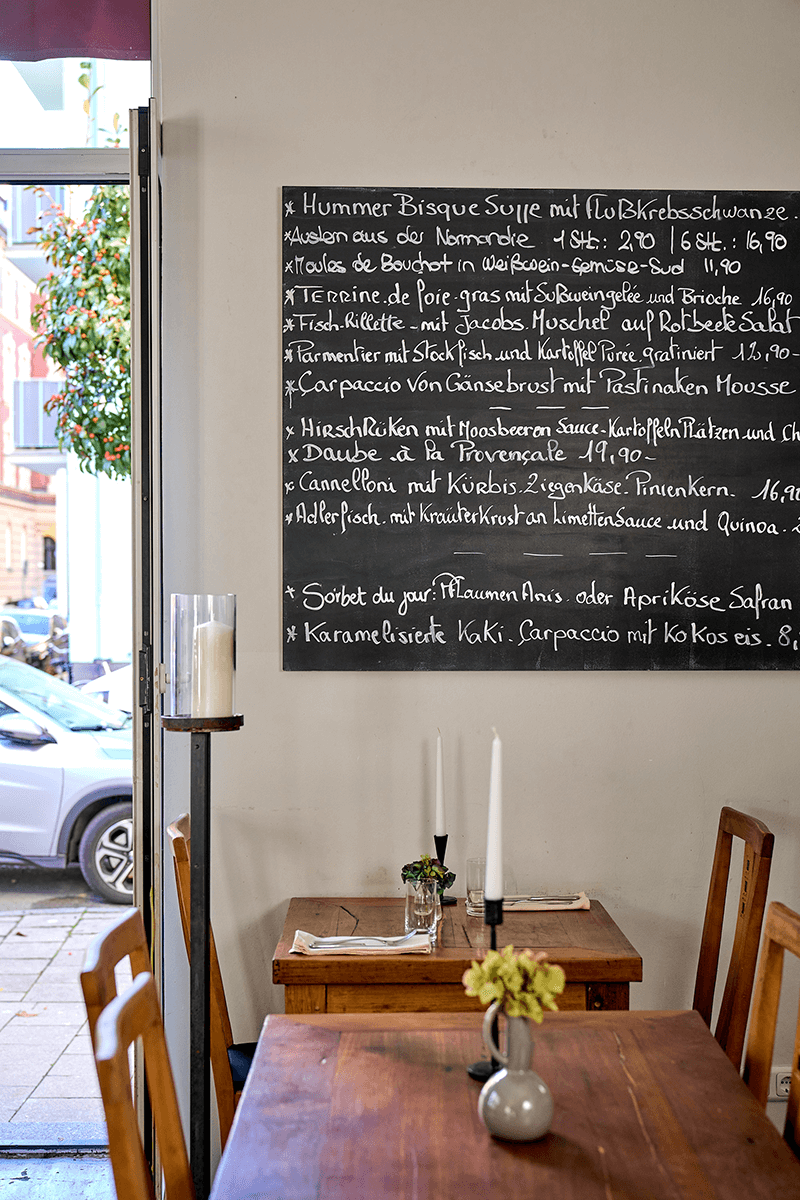 * Hummer Bisque Suppe mit Flußkrebsschwänze.
* Austern aus der Normandie 1 Stk.: 2,90 | 6 Stk.: 16,90
* Moules de Bouchot in Weißwein-Gemüse-Sud 11,90
* Terrine de foie gras mit Süßweingelée und Brioche 16,90
* Fisch-Rillette - mit Jacobs Muschel auf Rotbeete Salat
* Parmentier mit Stockfisch und Kartoffel Purée gratiniert 12,90-
* Carpaccio von Gänsebrust mit Pastinaken Mousse
* HirschRüken mit Moosbeeren Sauce - Kartoffeln Plätzen und Ch
* Daube à la Provençale 19,90-
* Cannelloni mit Kürbis. Ziegenkäse. Pinienkern. 16,90
* Adlerfisch. mit Kräuterkrust an Limettensauce und Quinoa. 2
* Sorbet du jour: Pflaumen Anis. oder Aprikose Safran
* Karamelisierte Kaki. Carpaccio mit Kokoseis. 8,